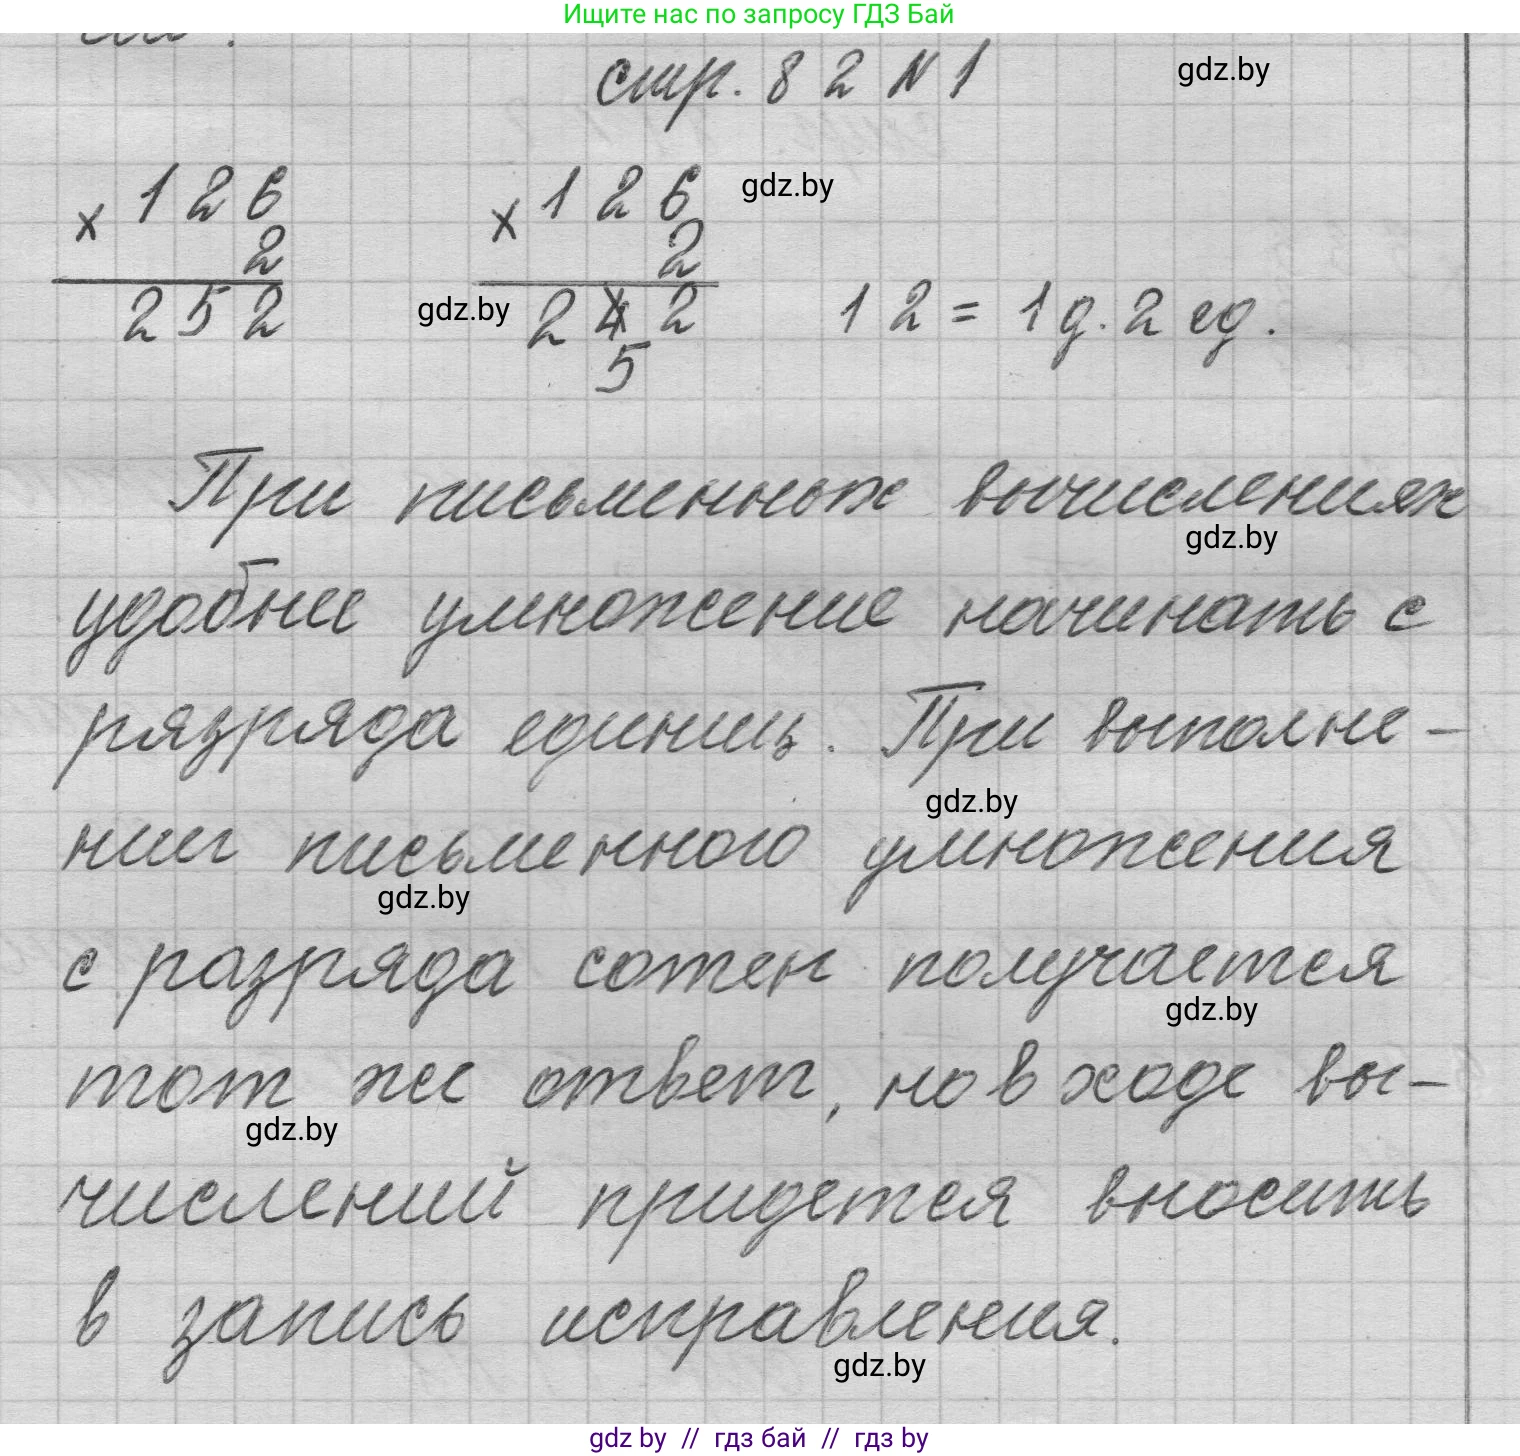 Ищите нас по запросу ГДЗ Бай
стр. 82 N 1
gdz.by
× 126
2
252
× 126
2
242
5
gdz.by
gdz.by
12 = 1 д. 2 ед.
При письменных вычислениях
gdz.by
удобнее умножение начинать с
рязряда единиц. При выполне-
gdz.by
нии письменного умножения
gdz.by
с разряда сотен получается
gdz.by
тот же ответ, но в ходе вы-
gdz.by
числений придется вносить
в запись исправления.
gdz.by
gdz by // гдз бай // гдз by